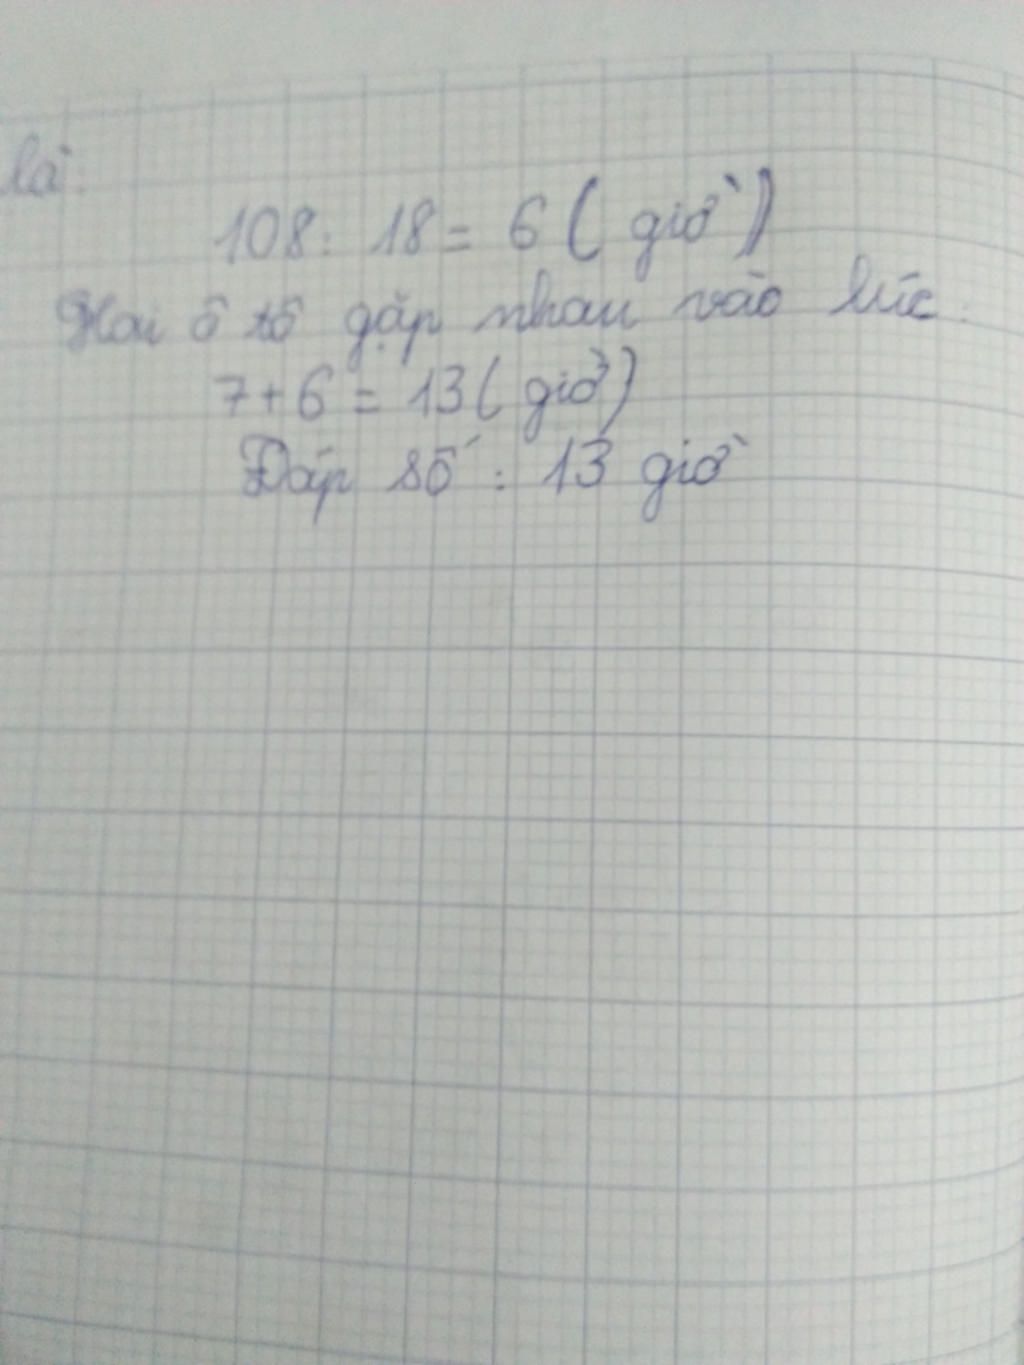 là:
108 : 18 = 6 ( giờ )
Hai ô tô gặp nhau vào lúc :
7 + 6 = 13 ( giờ )
Đáp số : 13 giờ